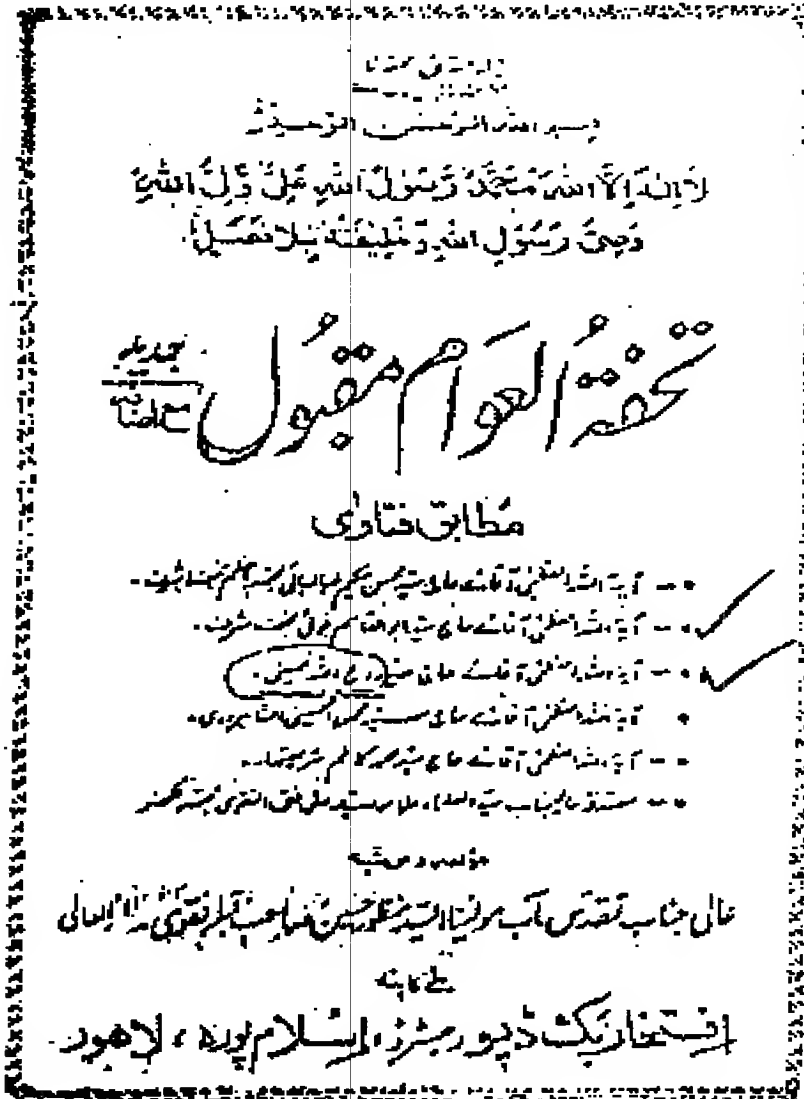 بسم الله الرحمن الرحيم
لَا اِلٰهَ اِلَّا اللهُ مُحَمَّدٌ رَّسُوْلُ اللهِ عَلِيٌّ وَّلِيُّ اللهِ
وَصِيُّ رَسُوْلِ اللهِ وَخَلِيْفَتُهٗ بِلَا فَصْلٍ
تحفۃُ العوَام مقبُول
جدید
مع اضافہ
مُطابق فتاوٰی
•-- آیۃ اللہ العظمٰی آقائے حاج سید محسن حکیم طباطبائی مجتہد اعظم نجف اشرف۔
•-- آیۃ اللہ العظمٰی آقائے حاج سید ابوالقاسم خوئی نجف اشرف۔
•-- آیۃ اللہ العظمٰی آقائے حاج سید روح اللہ خمینی۔
• آیۃ اللہ العظمٰی آقائے حاج سید محمود الحسینی الشاہرودی۔
•-- آیۃ اللہ العظمٰی آقائے حاج سید محمد کاظم شریعتمدار۔
•-- مصدقہ عالیجناب سید العلماء علامہ سید علی نقی النقوی مجتہد لکھنؤ
مؤلفہ و مرتبہ
عالی جناب تقدس مآب مولینا السید منظور حسین صاحب قبلہ نقوی مدظلہ العالی
ملنے کا پتہ
افتخار بک ڈپو رجسٹرڈ، اسلام پورہ، لاھور